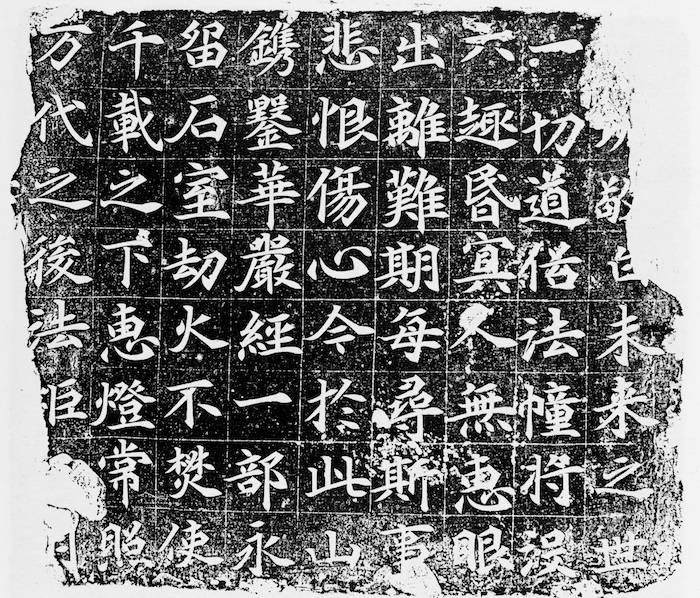 敬白未来之世
一切道俗法幢將没
六趣昏㝠人無惠眼
出離難期每尋斯事
悲恨傷心今於此山
鐫鑿華嚴經一部永
留石室劫火不焚使
千載之下惠燈常照
万代之後法炬